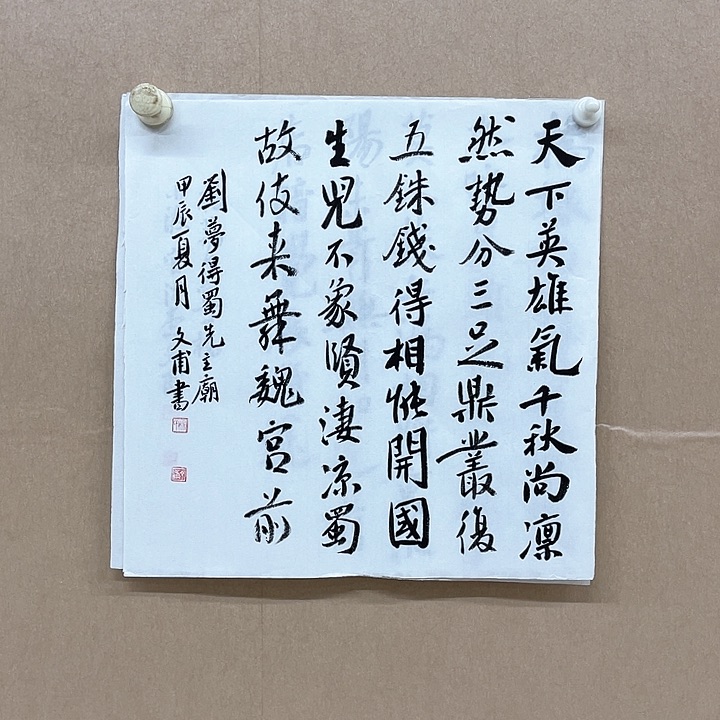 天下英雄氣千秋尚凜
然勢分三足鼎叢復
五銖錢得相能開國
生兒不象賢淒涼蜀
故伎来舞魏宮前
劉夢得蜀先主廟
甲辰夏月 文甫書